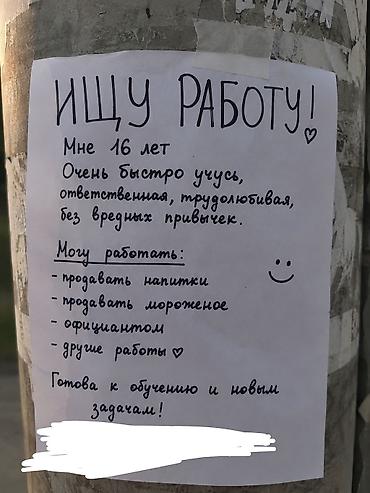 ИЩУ РАБОТУ!
Мне 16 лет
Очень быстро учусь,
ответственная, трудолюбивая,
без вредных привычек.
Могу работать:
- продавать напитки
- продавать мороженое
- официантом
- другие работы ♡
Готова к обучению и новым
задачам!